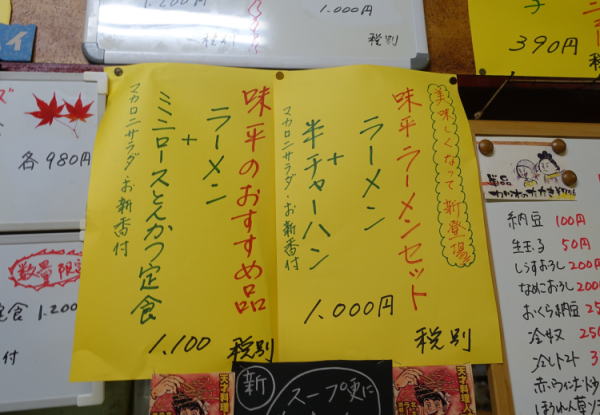 1.200円
税別
1.000円
税別
390円
税
美味しくなって新登場
味平ラーメンセット
ラーメン
+
半チャーハン
マカロニサラダ・お新香付
1.000円
税別
味平のおすすめ品
ラーメン
+
ミニロースとんかつ定食
マカロニサラダ・お新香付
1.100
税別
各980円
数量限定
定食 1.200
付
単品
納豆 100円
生玉る 50円
しらすおろし 200円
なめこおろし 200
おくら納豆
冷奴 250
冷とまと
新
スープ更に